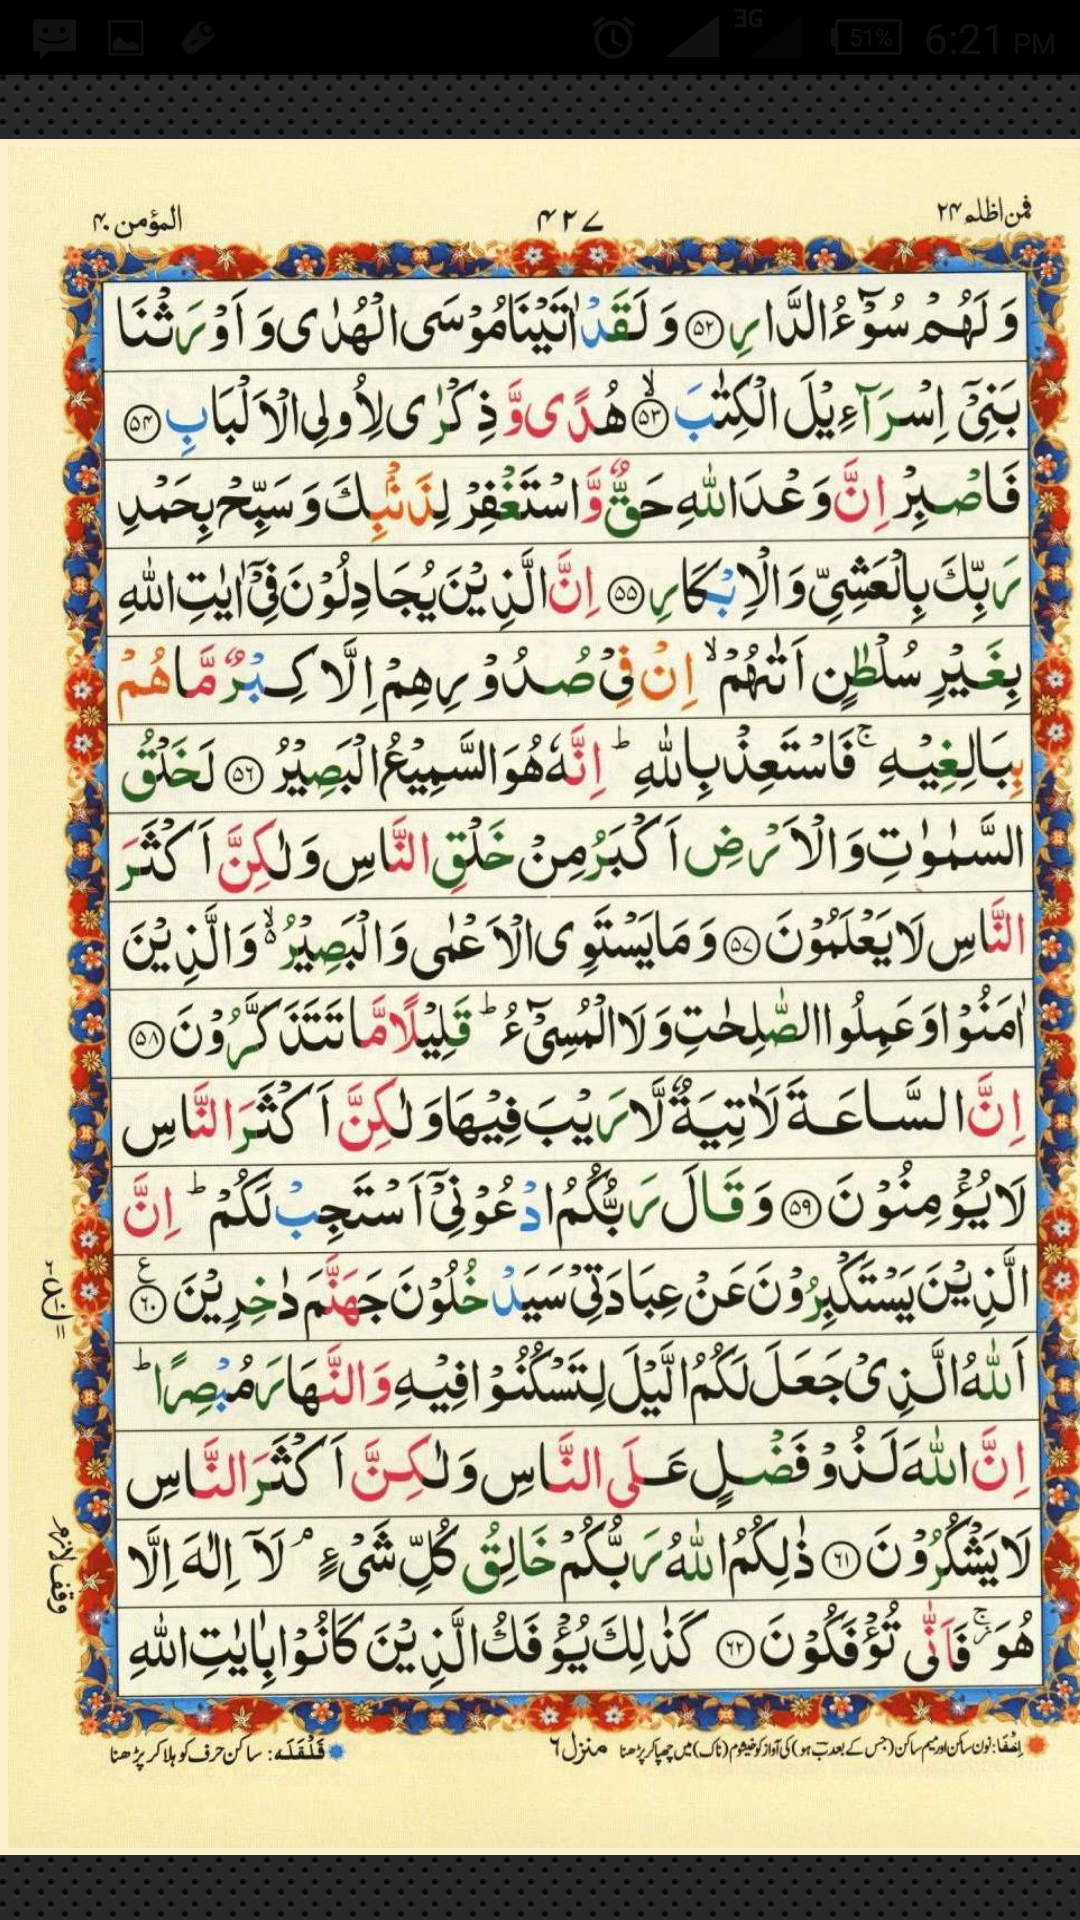 3G 51% 6:21 PM
فمن اظلم ۲۴ ۴۲۷ المؤمن ۴۰
وَلَهُمْ سُوْٓءُ الدَّارِ ۝۵۲ وَلَقَدْ اٰتَيْنَا مُوْسَى الْهُدٰى وَاَوْرَثْنَا
بَنِيْٓ اِسْرَآءِيْلَ الْكِتٰبَ ۝۵۳ۙ هُدًى وَّذِكْرٰى لِاُولِى الْاَلْبَابِ ۝۵۴
فَاصْبِرْ اِنَّ وَعْدَ اللّٰهِ حَقٌّ وَّاسْتَغْفِرْ لِذَنْۢبِكَ وَسَبِّحْ بِحَمْدِ
رَبِّكَ بِالْعَشِيِّ وَالْاِبْكَارِ ۝۵۵ اِنَّ الَّذِيْنَ يُجَادِلُوْنَ فِيْٓ اٰيٰتِ اللّٰهِ
بِغَيْرِ سُلْطٰنٍ اَتٰىهُمْ ۙ اِنْ فِيْ صُدُوْرِهِمْ اِلَّا كِبْرٌ مَّا هُمْ
بِبَالِغِيْهِ ۚ فَاسْتَعِذْ بِاللّٰهِ ؕ اِنَّهٗ هُوَ السَّمِيْعُ الْبَصِيْرُ ۝۵۶ لَخَلْقُ
السَّمٰوٰتِ وَالْاَرْضِ اَكْبَرُ مِنْ خَلْقِ النَّاسِ وَلٰكِنَّ اَكْثَرَ
النَّاسِ لَا يَعْلَمُوْنَ ۝۵۷ وَمَا يَسْتَوِى الْاَعْمٰى وَالْبَصِيْرُ ۙ۬ وَالَّذِيْنَ
اٰمَنُوْا وَعَمِلُوا الصّٰلِحٰتِ وَلَا الْمُسِيْٓءُ ؕ قَلِيْلًا مَّا تَتَذَكَّرُوْنَ ۝۵۸
اِنَّ السَّاعَةَ لَاٰتِيَةٌ لَّا رَيْبَ فِيْهَا وَلٰكِنَّ اَكْثَرَ النَّاسِ
لَا يُؤْمِنُوْنَ ۝۵۹ وَقَالَ رَبُّكُمُ ادْعُوْنِيْٓ اَسْتَجِبْ لَكُمْ ؕ اِنَّ
الَّذِيْنَ يَسْتَكْبِرُوْنَ عَنْ عِبَادَتِيْ سَيَدْخُلُوْنَ جَهَنَّمَ دٰخِرِيْنَ ۝۶۰ ع
اَللّٰهُ الَّذِيْ جَعَلَ لَكُمُ الَّيْلَ لِتَسْكُنُوْا فِيْهِ وَالنَّهَارَ مُبْصِرًا ؕ
اِنَّ اللّٰهَ لَذُوْ فَضْلٍ عَلَى النَّاسِ وَلٰكِنَّ اَكْثَرَ النَّاسِ
لَا يَشْكُرُوْنَ ۝۶۱ ذٰلِكُمُ اللّٰهُ رَبُّكُمْ خَالِقُ كُلِّ شَيْءٍ ۘ لَآ اِلٰهَ اِلَّا
وقف لازم
هُوَ ۚؗ فَاَنّٰى تُؤْفَكُوْنَ ۝۶۲ كَذٰلِكَ يُؤْفَكُ الَّذِيْنَ كَانُوْا بِاٰيٰتِ اللّٰهِ
اِخْفَا: نون ساکن اور میم ساکن (جس کے بعد ب ہو) کی آواز کو خیشوم (ناک) میں چھپا کر پڑھنا منزل ۶ قَلْقَلَه: ساکن حرف کو ہلا کر پڑھنا